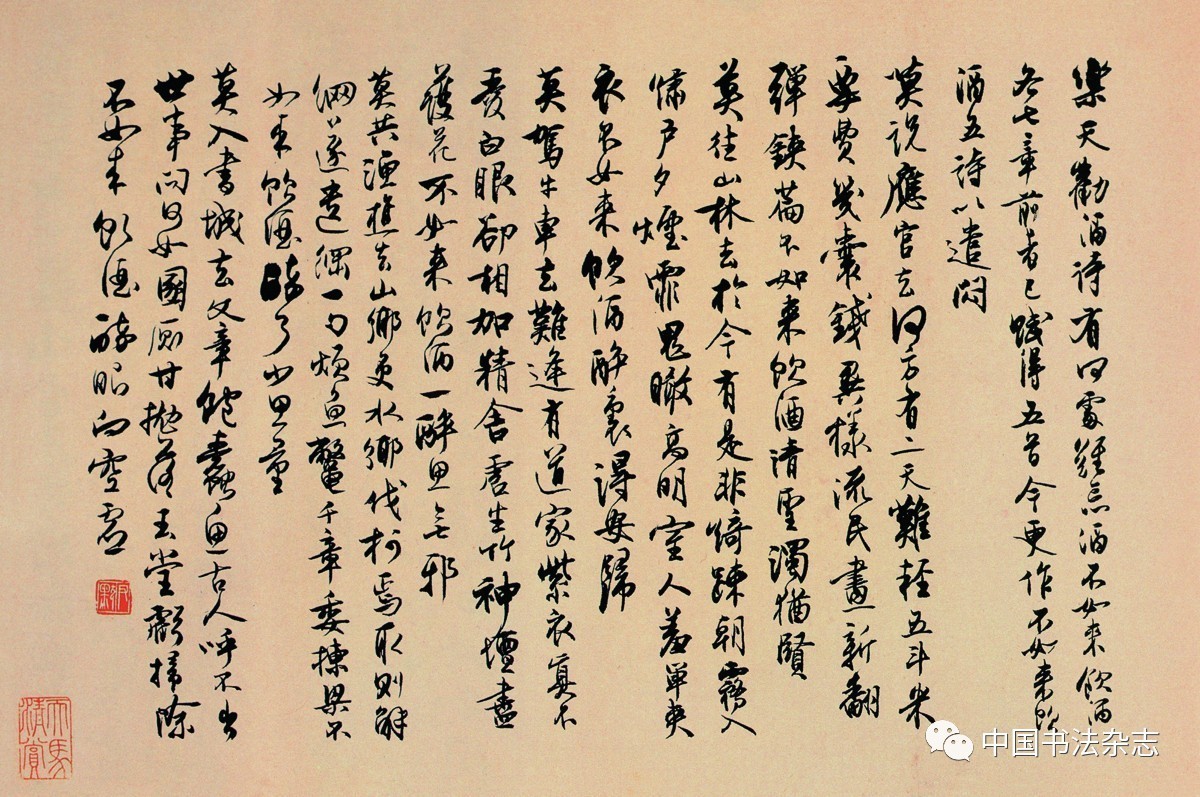 樂天勸酒詩有何處難忘酒不如來飲酒
各七章前者已賦得五首今更作不如來飲
酒五詩以遣悶
莫說應官去何方有二天難輕五斗米
要費幾囊錢異樣流民畫新翻
彈鋏篇不如來飲酒清聖濁猶賢
莫往山林去於今有是非綺疎朝霧入
繡戶夕煙霏鬼瞰高明室人羞單夾
衣不如來飲酒醉裏得安歸
莫駕牛車去難逢有道家紫衣真不
忝白眼卻相加精舍虛生竹神壇盡
護花不如來飲酒一醉思無邪
莫共漁樵去山鄉更水鄉伐柯焉取則解
網遂遺綱一勺煩魚鱉千章委棟梁不
如來飲酒醉了少思量
莫入書城去文章飽蠹魚古人呼不出
世事問何如國甘拋落玉堂掃除
不如來飲酒醉眼向空虛
天馬清賞
中国书法杂志